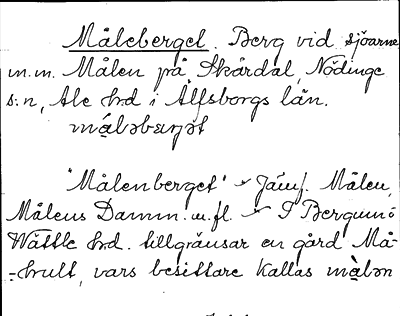 Målebergel. Berg vid sjöarne
m.m. Målen på Skårdal, Nödinge
s:n, Ale hrd i Älfsborgs län.
"Målenberget" Jämf. Målen,
Målens Damm. m.fl. I Bergum i
Wättle hrd. tillgränsar en gård Må-
=hult, vars besittare kallas